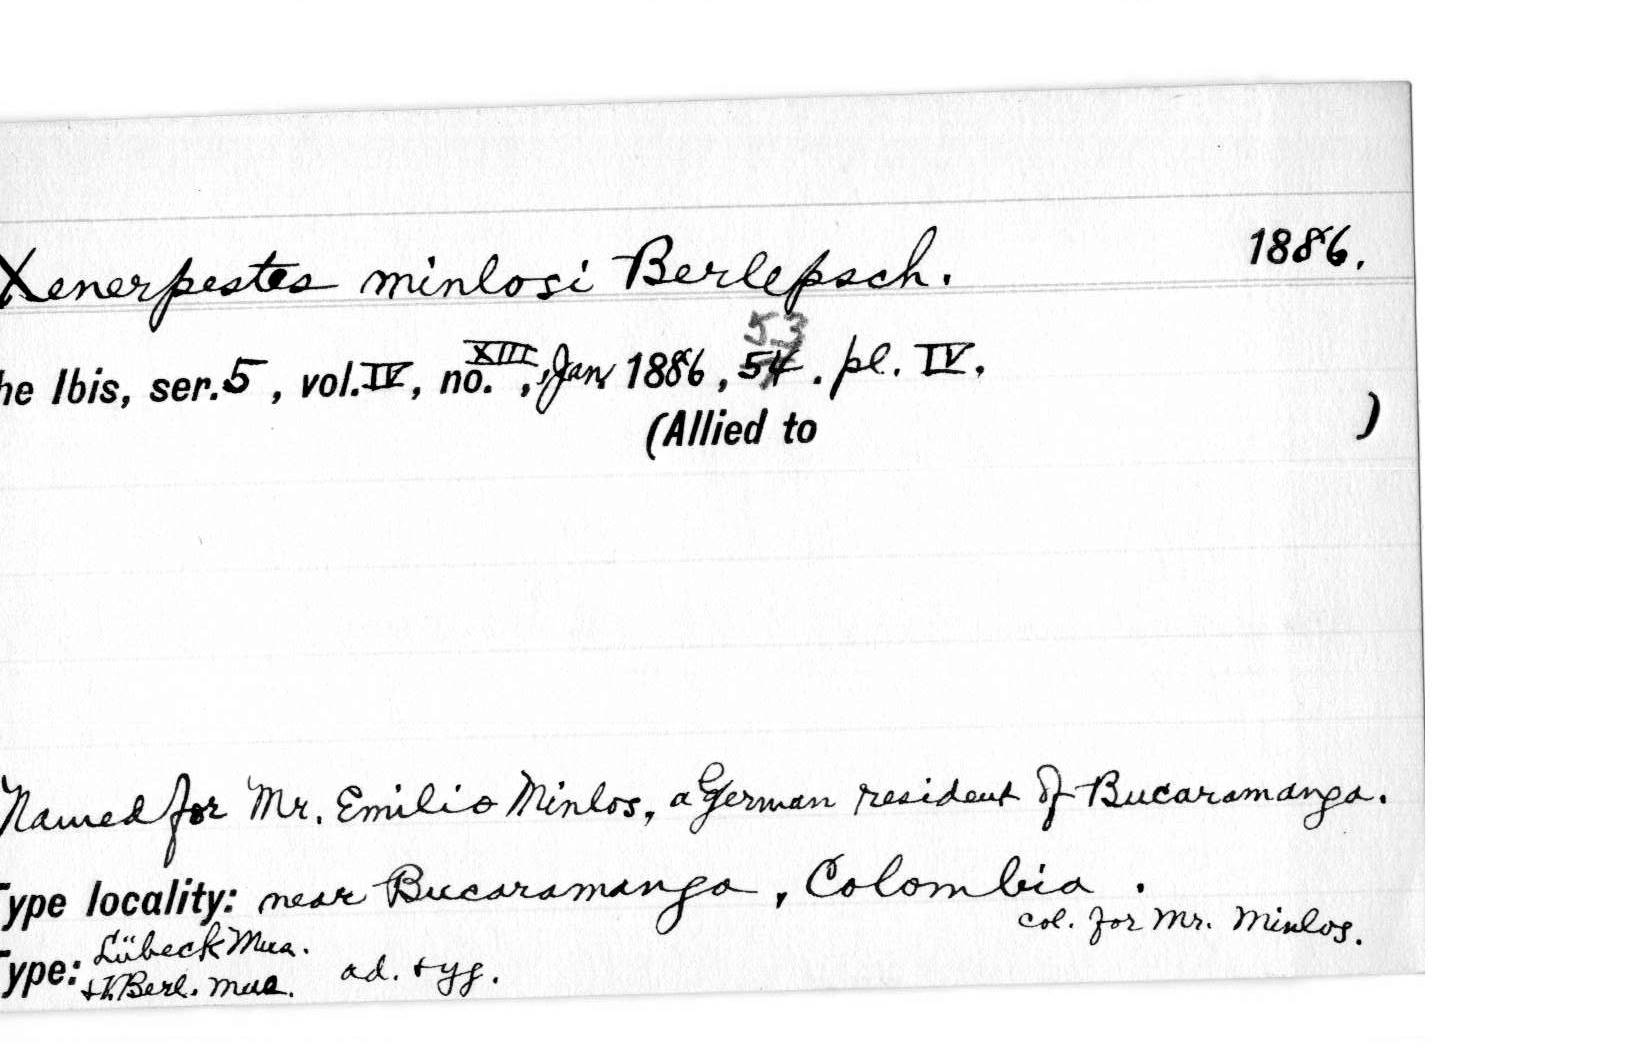 Xenerpestes minlosi Berlepsch. 1886.
53
he Ibis, ser. 5, vol. IV, no. XIII, Jan 1886, 54. pl. IV.
(Allied to )
Named for Mr. Emilio Minlos, a German resident of Bucaramanga.
Type locality: near Bucaramanga, Colombia.
col. for Mr. Minlos.
Type: Lübeck Mus.
Berl. Mus. ad. + yg.